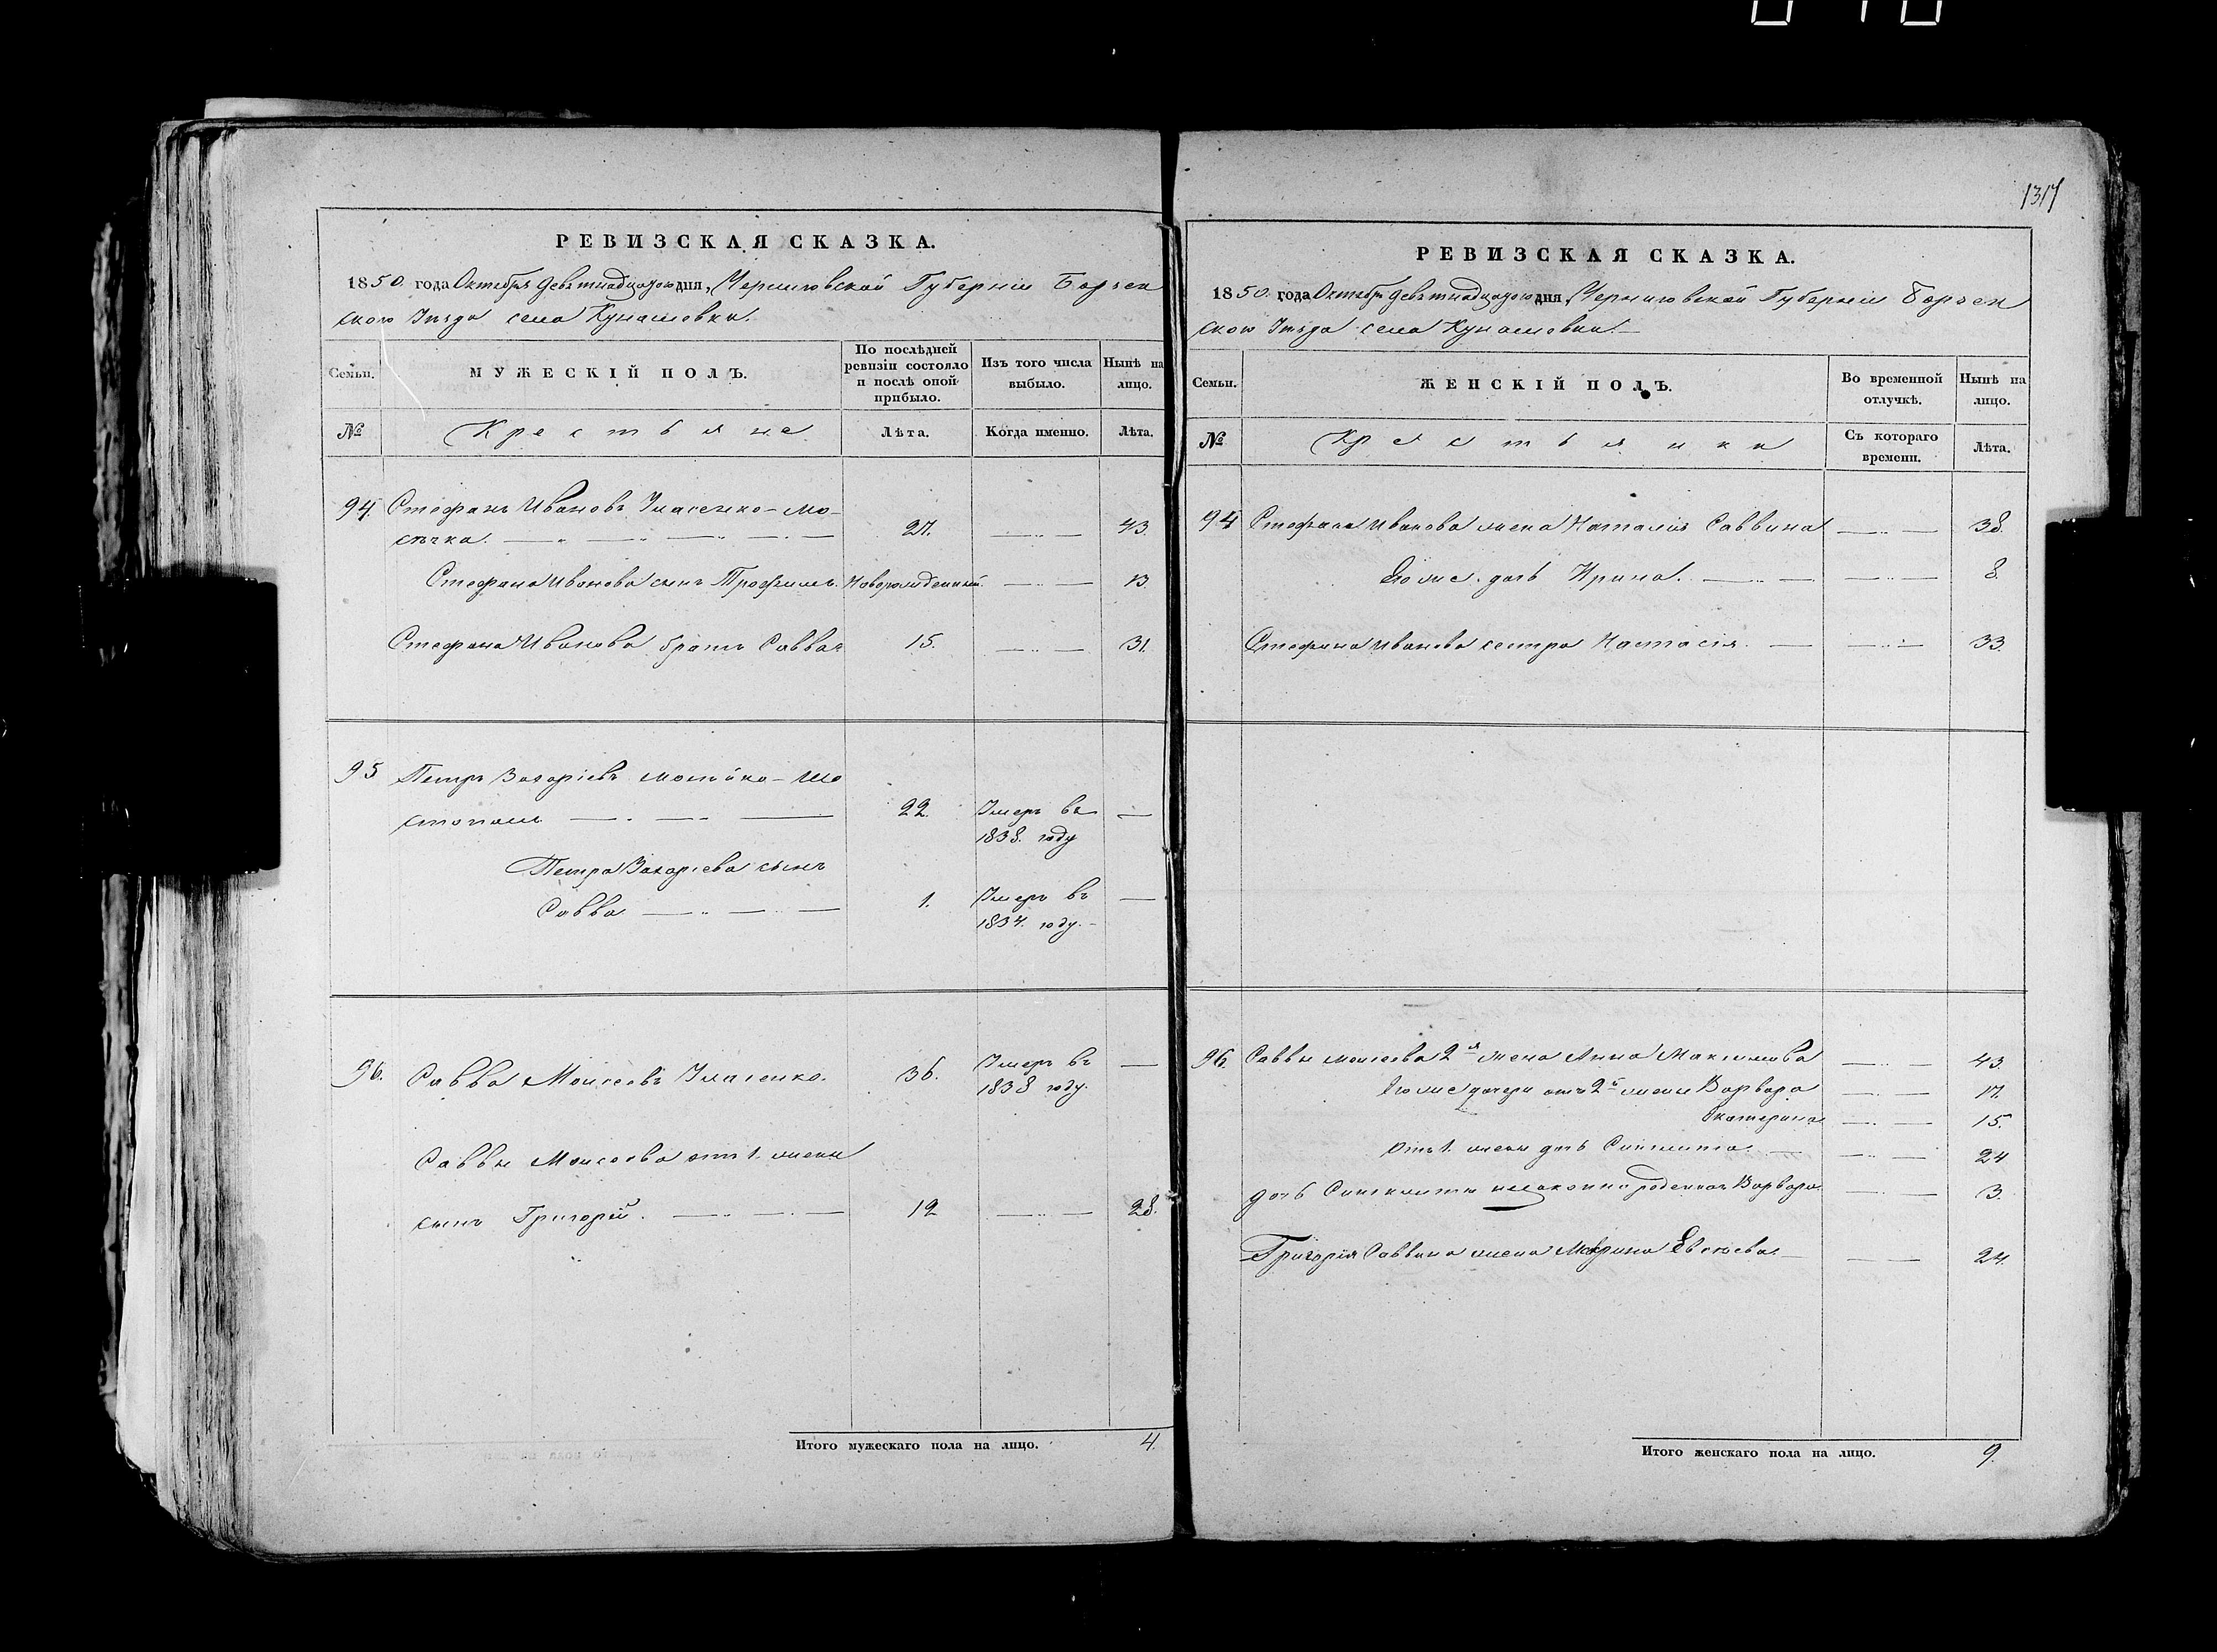 1317
РЕВИЗСКАЯ СКАЗКА.
1850. года Октября девятнадцатого дня, Черниговской Губерніи Борзен
ского Уѣзда села Кунашовки.
Семьи.
МУЖЕСКІЙ ПОЛЪ.
По послѣдней ревизіи состояло и послѣ оной прибыло.
Изъ того числа выбыло.
Нынѣ на лицо.
№
Крестьяне
Лѣта.
Когда именно.
Лѣта.
94 Стефанъ Ивановъ Уласенко-Мо-
сѣчка. 27. 43.
Стефана Иванова сынъ Трофимъ. Новорожденный. 13.
Стефана Иванова братъ Савва 15. 31.
95 Петръ Захаріевъ
22. Умеръ въ
1838. году
Петра Захаріева сынъ
Савва 1. Умеръ въ
1834. году.
96. Савва Моисеевъ Уласенко. 36. Умеръ въ
1838 году.
Саввы Моисеева отъ 1. жены
сынъ Григорій. 12 28.
Итого мужескаго пола на лицо. 4.
РЕВИЗСКАЯ СКАЗКА.
1850. года Октября девятнадцатого дня, Черниговской Губерніи Борзен
ского Уѣзда села Кунашовки.
Семьи.
ЖЕНСКІЙ ПОЛЪ.
Во временной отлучкѣ.
Нынѣ на лицо.
№
Крестьянки
Съ котораго времени.
Лѣта.
94 Стефана Иванова жена Наталія Саввина 38.
Его же дочь Ирина. 8.
Стефана Иванова сестра Настасія. 33.
96. Саввы Моисеева 2я жена Анна Максимова 43.
Его же дочери отъ 2й жены Варвара 17.
Екатерина 15.
Отъ 1. жены дочь 24
дочь незаконно рожденная Варвара. 3.
Григорія Саввина жена Марина Евсѣева 24.
Итого женскаго пола на лицо. 9.